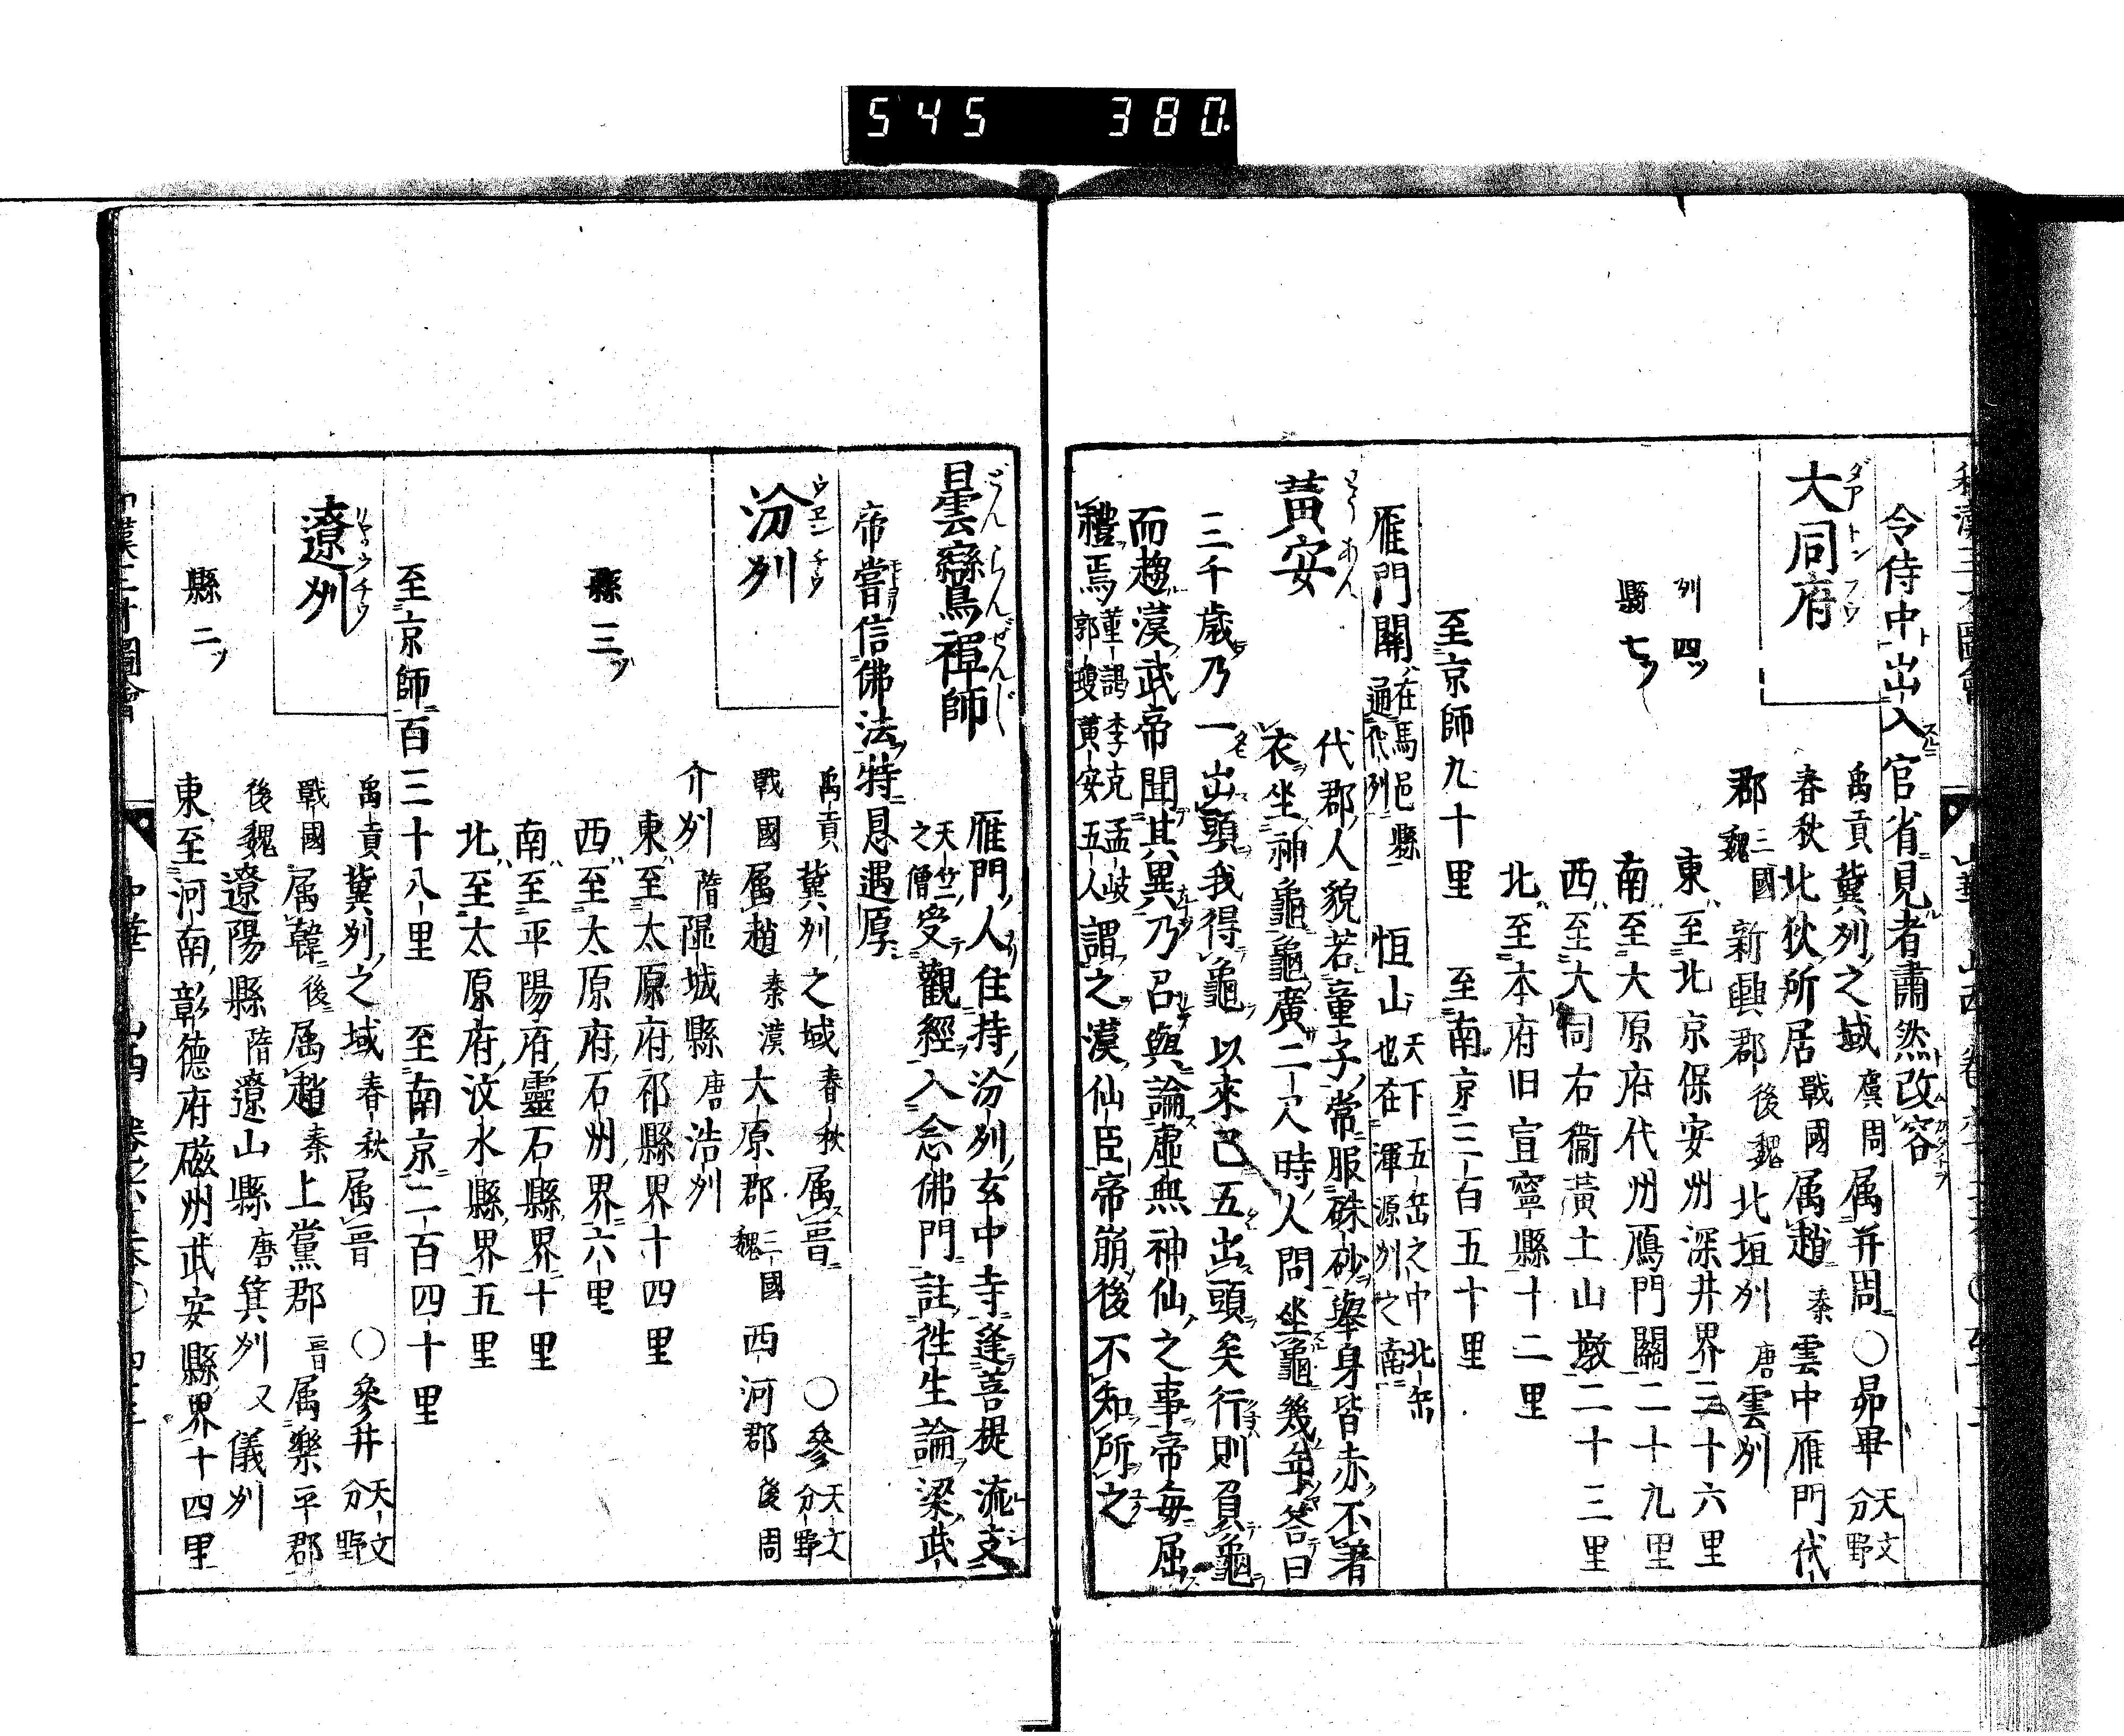 545 380
令侍中出入官省見者肅然改容
大同府 ダアトンフウ
禹貢冀州之域 虞周 属并周 〇昴畢 天文分野
春秋北狄所居 戰國 属趙 秦 雲中雁門代
郡 三國魏 新興郡 後魏 北垣州 唐 雲州
州四ツ 東至北京保安州深井界三十六里
縣七ツ 南至大原府代州鴈門關二十九里
西至大同右衞黃土山墩二十三里
北至本府旧宣寧縣十二里
至京師九十里 至南京三百五十里
雁門關 在馬邑縣通代州 恒山 天下五岳之中北岳也在渾源州之南
黃安 代郡人貌若童子常服硃砂舉身皆赤不著
衣坐神龜龜廣二人時人問坐龜幾年答曰
三千歳乃一出頭我得龜以來已五出頭矣行則負龜
而趨漢武帝聞其異乃召與論虛無神仙之事帝每屈
禮焉 董謁李克孟岐郭瓊黃安五人 謂之漢仙臣帝崩後不知所之
曇鸞禪師 どんらんぜんじ 雁門人住持汾州玄中寺逢菩提流支
天竺之僧 受觀經入念佛門註往生論梁武
帝嘗信佛法特恩遇厚
汾州 ウヱンチウ
禹貢 冀州之域 春秋 属晋 〇參 天文分野
戰國 属趙 秦漢 大原郡 三國魏 西河郡 後周
介州 隋 隰城縣 唐 浩州
縣三ツ 東至太原府祁縣界十四里
西至太原府石州界六里
南至平陽府靈石縣界十里
北至太原府汶水縣界五里
至京師百三十八里 至南京二百四十里
遼州 リヤウチウ
禹貢 冀州之域 春秋 属晋 〇參井 天文分野
戰國 属韓 後 属趙 秦 上黨郡 晋 属樂平郡
後魏 遼陽縣 隋 遼山縣 唐 箕州 又 儀州
縣二ツ 東至河南彰德府磁州武安縣界十四里